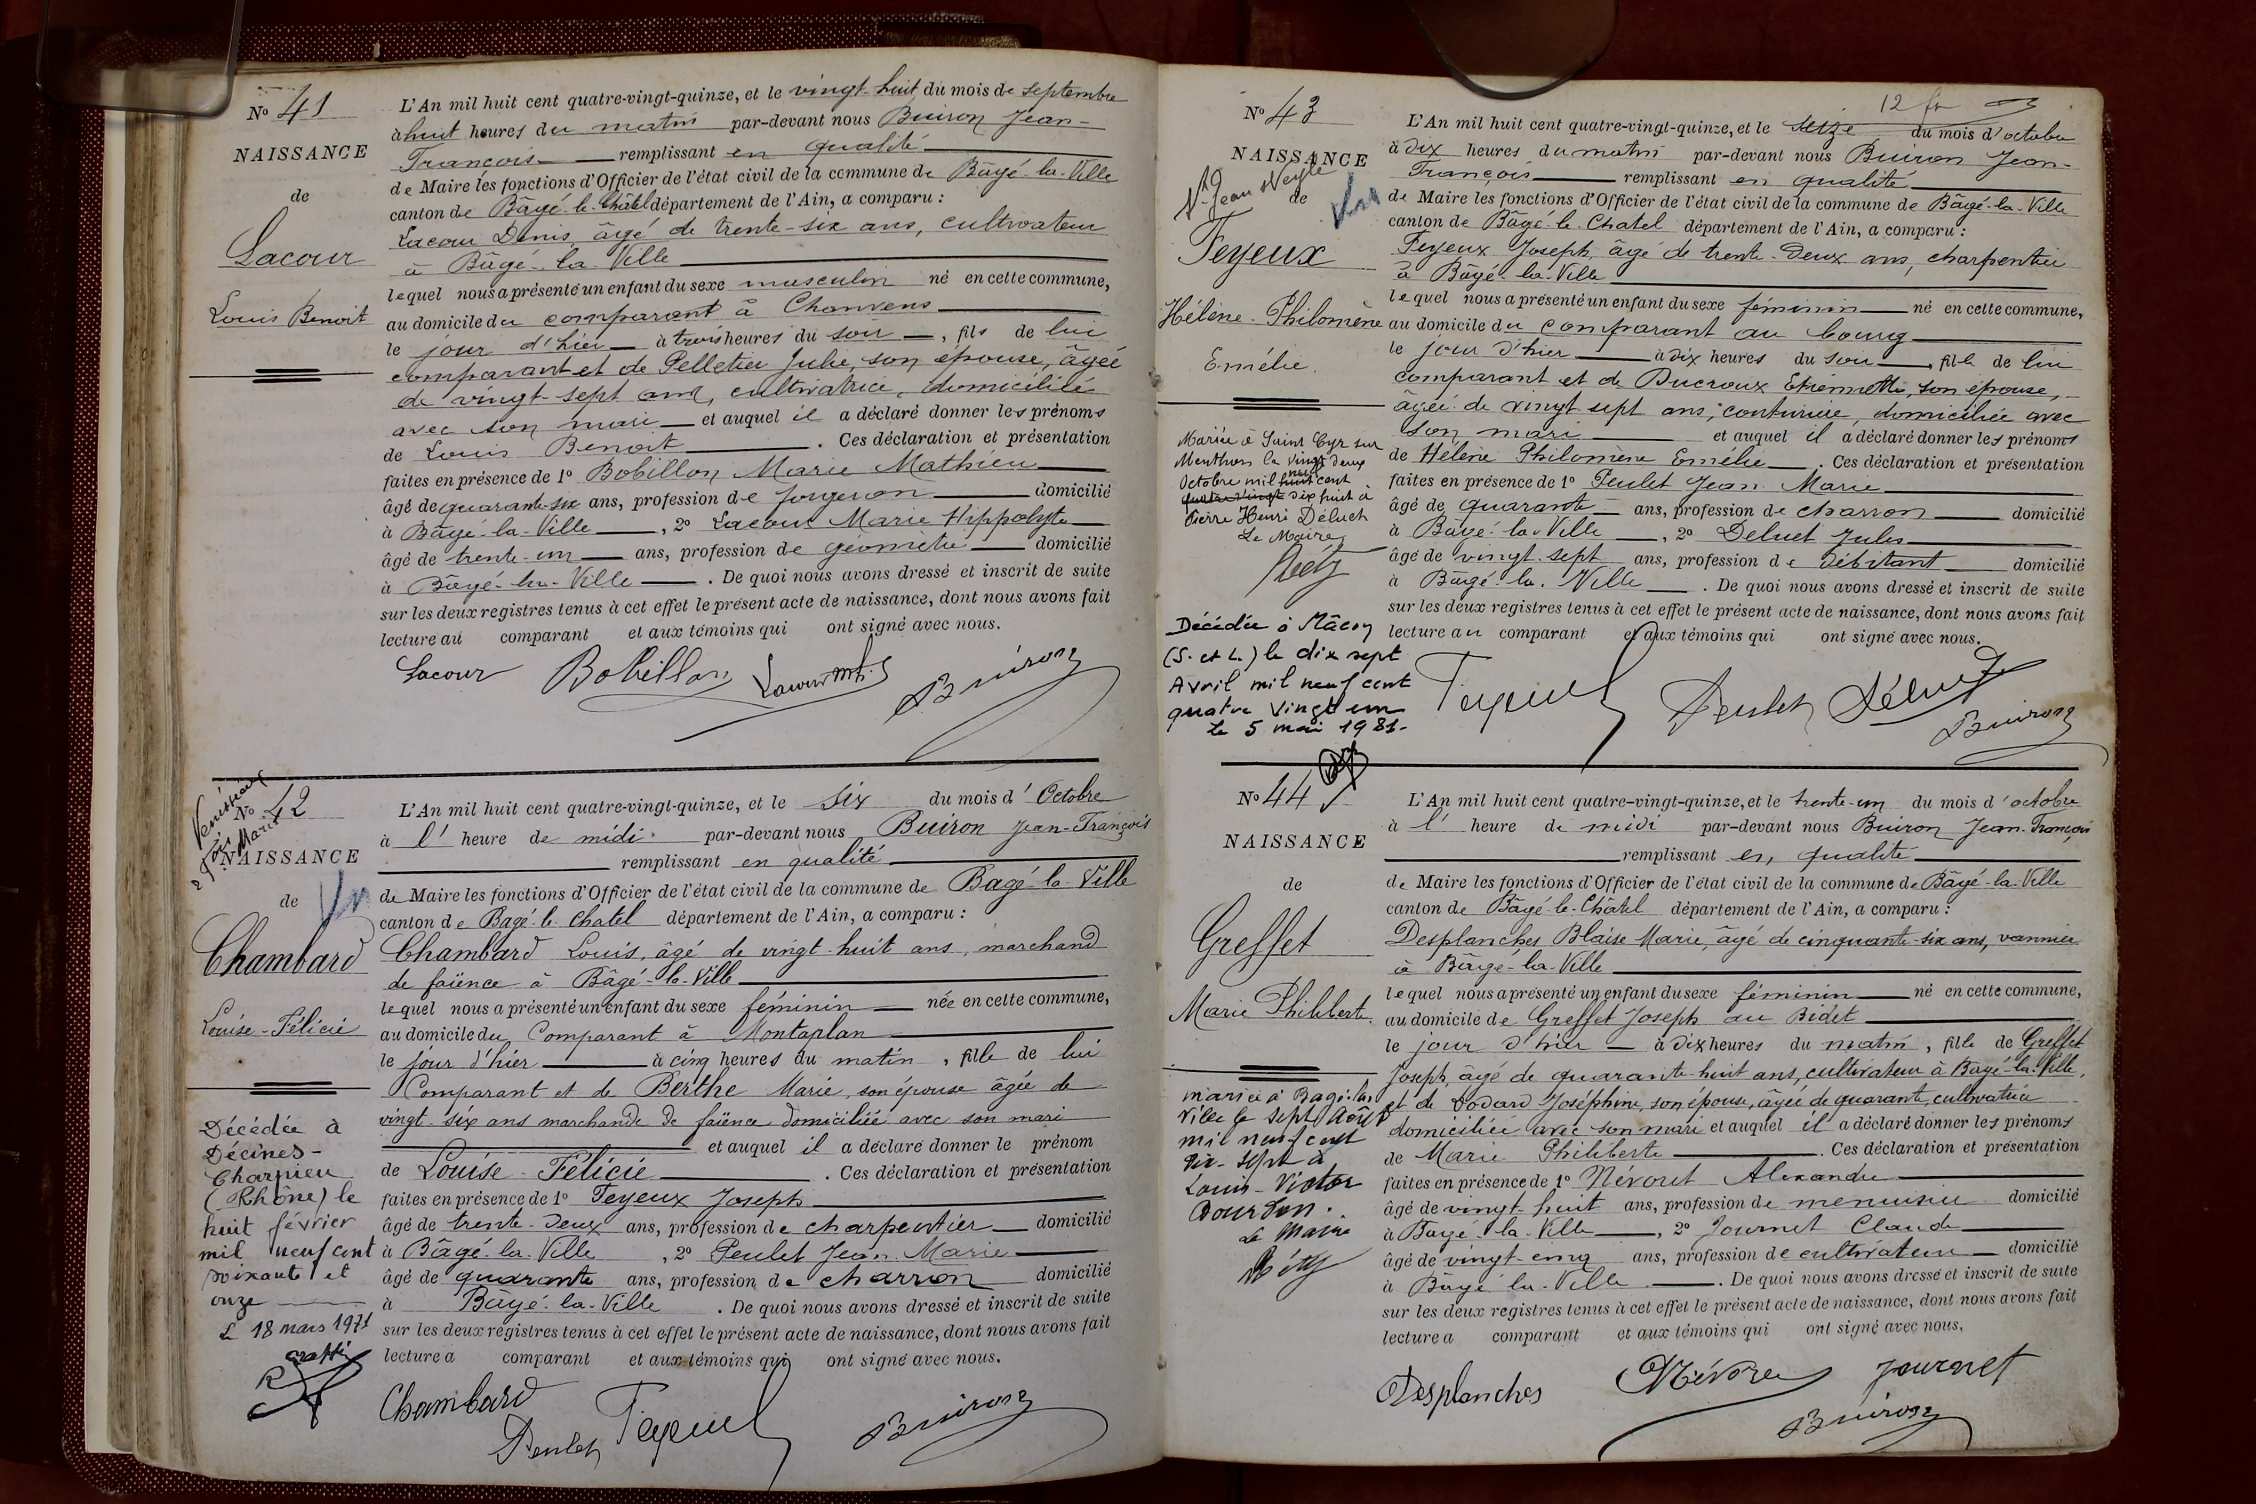 No 41
NAISSANCE
de
Lacour
Louis Benoit
L'An mil huit cent quatre-vingt-quinze, et le vingt-huit du mois de septembre
à huit heures du matin par-devant nous Buiron Jean-
François remplissant en qualité
de Maire les fonctions d'Officier de l'état civil de la commune de Bâgé-la-Ville
canton de Bâgé-le-Châtel département de l'Ain, a comparu :
Lacour Denis, âgé de trente-six ans, cultivateur
à Bâgé-la-Ville
lequel nous a présenté un enfant du sexe masculin né en cette commune,
au domicile du comparant à Chanvens
le jour d'hier à trois heures du soir, fils de lui
comparant et de Pelletier Julie, son épouse, âgée
de vingt-sept ans, cultivatrice, domiciliée
avec son mari et auquel il a déclaré donner les prénoms
de Louis Benoit. Ces déclaration et présentation
faites en présence de 1o Bobillon Marie Mathieu
âgé de quarante-six ans, profession de forgeron domicilié
à Bâgé-la-Ville, 2o Lacour Marie Hippolyte
âgé de trente-un ans, profession de géomètre domicilié
à Bâgé-la-Ville. De quoi nous avons dressé et inscrit de suite
sur les deux registres tenus à cet effet le présent acte de naissance, dont nous avons fait
lecture au comparant et aux témoins qui ont signé avec nous.
Lacour Bobillon Lacour Buiron
Vénissieux
No 42
NAISSANCE
de
Chambard
Louise-Félicie
Décédée à
Décines-
Charpieu
(Rhône) le
huit février
mil neuf cent
soixante et
onze
L 18 mars 1971
L'An mil huit cent quatre-vingt-quinze, et le six du mois d'Octobre
à l'heure de midi par-devant nous Buiron Jean-François
remplissant en qualité
de Maire les fonctions d'Officier de l'état civil de la commune de Bagé-la-Ville
canton de Bagé-le-Chatel département de l'Ain, a comparu :
Chambard Louis, âgé de vingt-huit ans, marchand
de faïence à Bâgé-la-Ville
lequel nous a présenté un enfant du sexe féminin née en cette commune,
au domicile du Comparant à Montaplan
le jour d'hier à cinq heures du matin, fille de lui
Comparant et de Berthe Marie, son épouse âgée de
vingt-six ans marchande de faïence domiciliée avec son mari
et auquel il a déclaré donner le prénom
de Louise-Félicie. Ces déclaration et présentation
faites en présence de 1o Feyeux Joseph
âgé de trente-deux ans, profession de charpentier domicilié
à Bâgé-la-Ville, 2o Peulet Jean-Marie
âgé de quarante ans, profession de charron domicilié
à Bâgé-la-Ville. De quoi nous avons dressé et inscrit de suite
sur les deux registres tenus à cet effet le présent acte de naissance, dont nous avons fait
lecture a comparant et aux témoins qui ont signé avec nous.
Chambard Peulet Feyeux Buiron
12 fr
No 43
NAISSANCE
de
St Jean s/Veyle
Feyeux
Hélène-Philomène
Emélie.
Mariée à Saint Cyr sur
Menthon le vingt deux
Octobre mil huit neuf cent
quatre vingt dix huit à
Pierre Henri Déluet
Le Maire
Décédée à Mâcon
(S. et L.) le dix sept
Avril mil neuf cent
quatre vingt un
Le 5 mai 1981.
L'An mil huit cent quatre-vingt-quinze, et le seize du mois d'octobre
à dix heures du matin par-devant nous Buiron Jean-
François remplissant en qualité
de Maire les fonctions d'Officier de l'état civil de la commune de Bâgé-la-Ville
canton de Bâgé-le-Chatel département de l'Ain, a comparu :
Feyeux Joseph, âgé de trente-deux ans, charpentier
à Bâgé-la-Ville
lequel nous a présenté un enfant du sexe féminin né en cette commune,
au domicile du comparant au bourg
le jour d'hier à dix heures du soir, fille de lui
comparant et de Ducroux Etiennette, son épouse,
âgée de vingt sept ans, couturière, domiciliée avec
son mari et auquel il a déclaré donner les prénoms
de Hélène Philomène Emélie. Ces déclaration et présentation
faites en présence de 1o Peulet Jean Marie
âgé de quarante ans, profession de charron domicilié
à Bâgé-la-Ville, 2o Deluet Jules
âgé de vingt-sept ans, profession de débitant domicilié
à Bâgé-la-Ville. De quoi nous avons dressé et inscrit de suite
sur les deux registres tenus à cet effet le présent acte de naissance, dont nous avons fait
lecture au comparant et aux témoins qui ont signé avec nous.
Feyeux Peulet Déluet
Buiron
No 44
NAISSANCE
de
Greffet
Marie Philiberte
mariée à Bagé-la-
Ville le sept Août
mil neuf cent
dix-sept à
Louis-Victor
Dourdon.
Le Maire
L'An mil huit cent quatre-vingt-quinze, et le trente-un du mois d'octobre
à l'heure de midi par-devant nous Buiron Jean-François
remplissant en qualité
de Maire les fonctions d'Officier de l'état civil de la commune de Bâgé-la-Ville
canton de Bâgé-le-Châtel département de l'Ain, a comparu :
Desplanches Blaise Marie, âgé de cinquante-six ans, vannier
à Bâgé-la-Ville
lequel nous a présenté un enfant du sexe féminin né en cette commune,
au domicile de Greffet Joseph au Bidet
le jour d'hier à dix heures du matin, fille de Greffet
Joseph, âgé de quarante-huit ans, cultivateur à Bagé-la-Ville,
et de Dodard Joséphine, son épouse, âgée de quarante, cultivatrice
domiciliée avec son mari et auquel il a déclaré donner les prénoms
de Marie Philiberte. Ces déclaration et présentation
faites en présence de 1o Névoret Alexandre
âgé de vingt-huit ans, profession de menuisier domicilié
à Bagé-la-Ville, 2o Journet Claude
âgé de vingt-cinq ans, profession de cultivateur domicilié
à Bâgé-la-Ville. De quoi nous avons dressé et inscrit de suite
sur les deux registres tenus à cet effet le présent acte de naissance, dont nous avons fait
lecture a comparant et aux témoins qui ont signé avec nous.
Desplanches Névoret Journet
Buiron